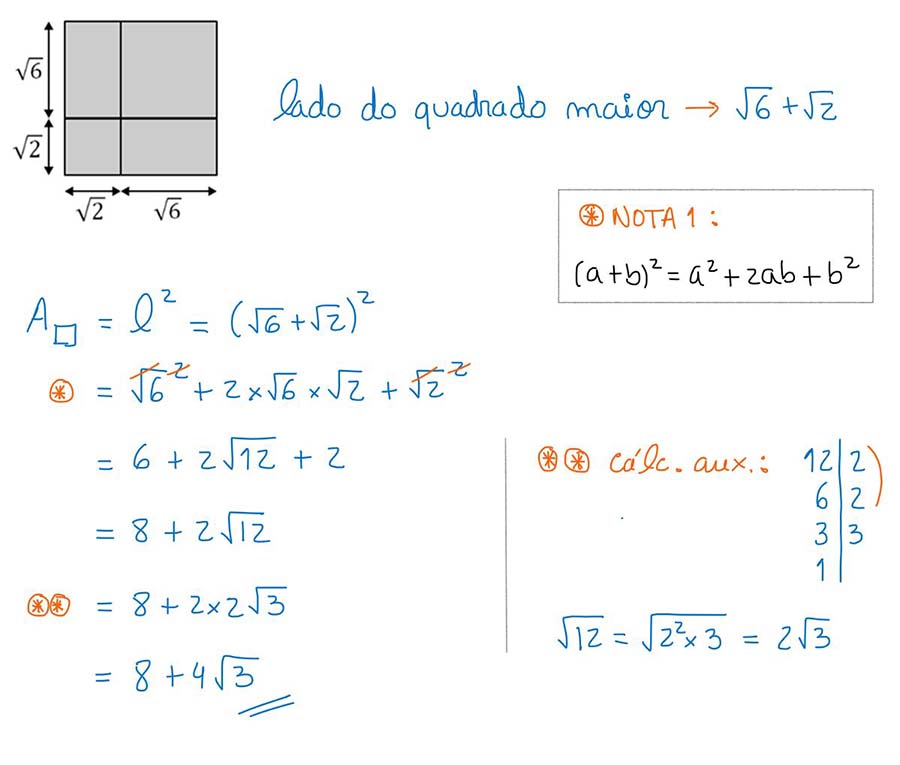 √6
√2
√2 √6
lado do quadrado maior → √6 + √2
⊛ NOTA 1 :
(a+b)² = a² + 2ab + b²
A□ = l² = (√6 + √2)²
⊛ = √6² + 2 × √6 × √2 + √2²
= 6 + 2√12 + 2
= 8 + 2√12
⊛⊛ = 8 + 2×2√3
= 8 + 4√3
⊛⊛ cálc. aux. :
12 | 2
6 | 2
3 | 3
1 |
√12 = √2²×3 = 2√3